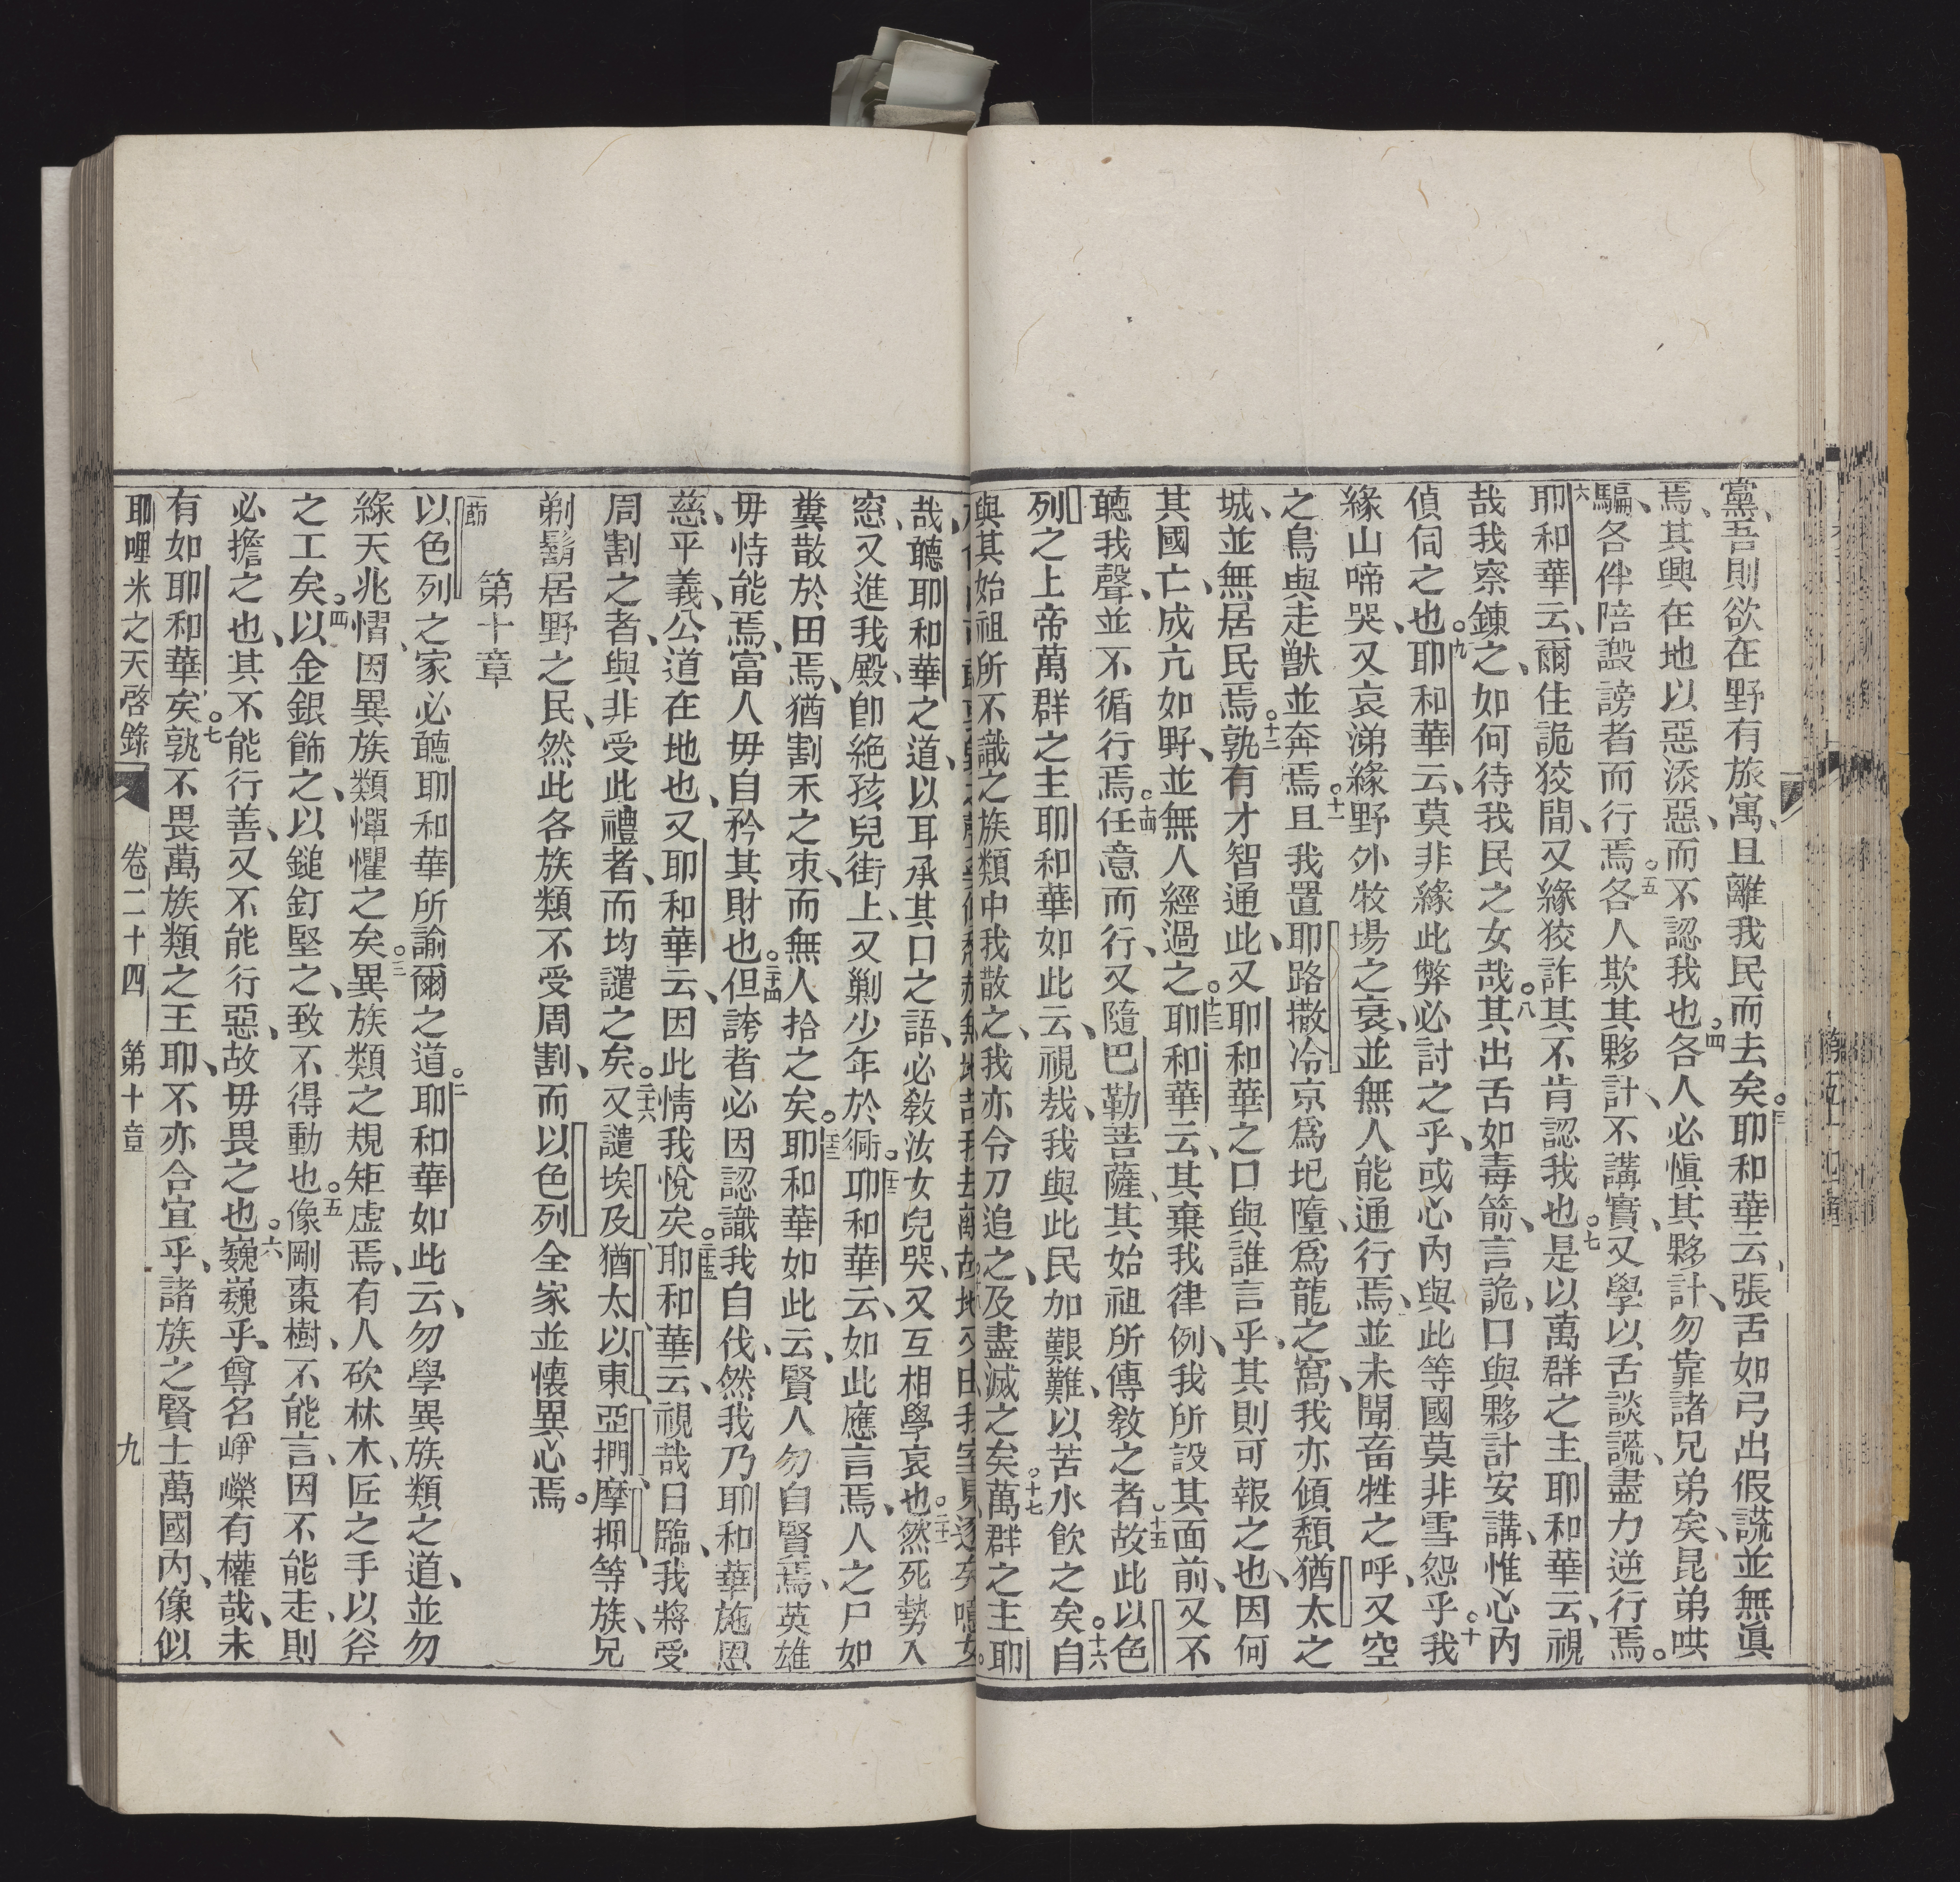 黨、吾則欲在野有旅寓、且離我民而去矣。三耶和華云、張舌如弓出假謊並無眞
焉、其興在地以惡添惡、而不認我也。四各人必愼其夥計、勿靠諸兄弟矣、昆弟哄
騙、各伴陪譭謗者而行焉。五各人欺其夥計、不講實、又學以舌談謊、盡力逆行焉。
六耶和華云、爾住詭狡間、又緣狡詐其不肯認我也。七是以萬群之主耶和華云、視
哉我察鍊之、如何待我民之女哉。八其出舌如毒箭、言詭、口與夥計安講、惟心內
偵伺之也。九耶和華云、莫非緣此弊必討之乎、或心內與此等國莫非雪怨乎。十我
緣山啼哭、又哀涕緣野外牧場之衰、並無人能通行焉、並未聞畜牲之呼、又空
之鳥與走獸並奔焉。十一且我置耶路撒冷京爲圯墮、爲龍之窩、我亦傾頹猶太之
城、並無居民焉。十二孰有才智通此、又耶和華之口與誰言乎、其則可報之也、因何
其國亡、成亢如野、並無人經過之。十三耶和華云、其棄我律例、我所設其面前、又不
聽我聲、並不循行焉。十四任意而行、又隨巴勒菩薩、其始祖所傳敎之者。十五故此以色
列之上帝萬群之主耶和華如此云、視哉、我與此民加艱難、以苦水飲之矣。十六自
與其始祖所不識之族類中我散之、我亦令刀追之、及盡滅之矣。十七萬群之主耶
哉、聽耶和華之道、以耳承其口之語、必敎汝女兒哭、又互相學哀也。二十一然死勢入
窓、又進我殿、卽絕孩兒街上、又剿少年於衕。二十二耶和華云、如此應言焉、人之尸如
糞散於田焉、猶割禾之朿、而無人拾之矣。二十三耶和華如此云、賢人勿自賢焉、英雄
毋恃能焉、富人毋自矜其財也。二十四但誇者必因認識我自伐、然我乃耶和華施恩
慈、平義、公道在地也、又耶和華云、因此情我悅矣。二十五耶和華云、視哉日臨、我將受
周割之者、與非受此禮者、而均譴之矣。二十六又譴埃及、猶太、以東、亞捫、摩押、等族、兄
剃鬍居野之民、然此各族類不受周割、而以色列全家並懷異心焉。
第十章
節以色列之家、必聽耶和華所諭爾之道。二耶和華如此云、勿學異族類之道、並勿
緣天兆慴、因異族類憚懼之矣。三異族類之規矩虛焉、有人砍林木、匠之手以斧
之工矣。四以金銀飾之、以鎚釘堅之、致不得動也。五像剛棗樹、不能言、因不能走、則
必擔之也、其不能行善、又不能行惡、故毋畏之也。六巍巍乎、尊名崢嶸有權哉、未
有如耶和華矣。七孰不畏萬族類之王耶、不亦合宜乎、諸族之賢士萬國內、像似
耶哩米之天啓錄 卷二十四 第十章 九